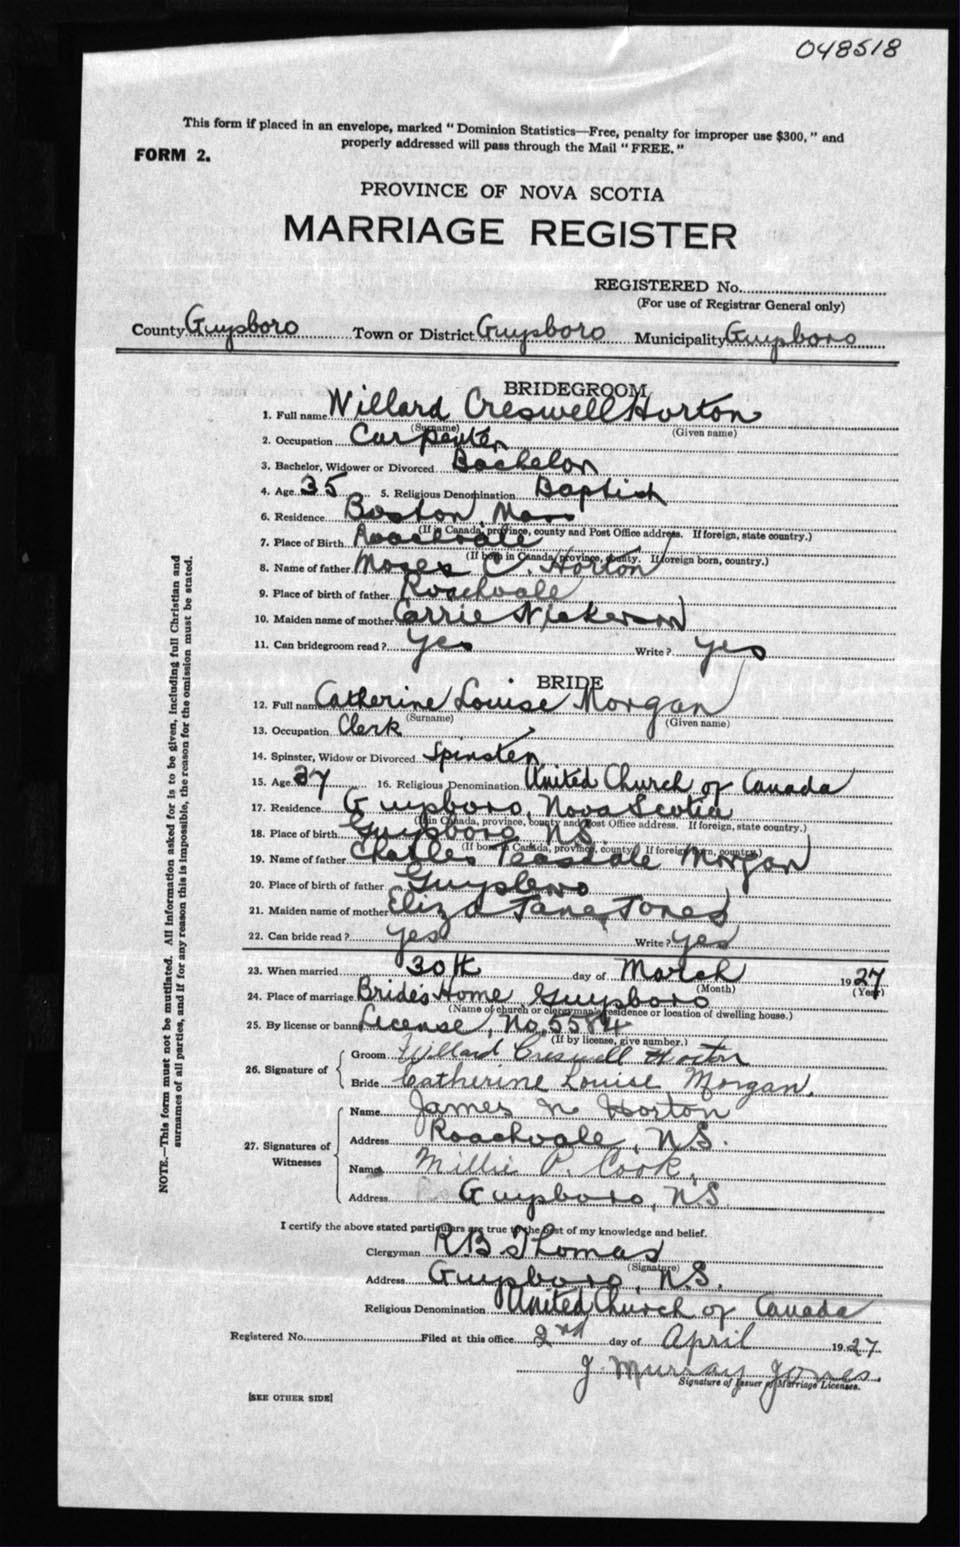 048518
This form if placed in an envelope, marked "Dominion Statistics—Free, penalty for improper use $300," and
properly addressed will pass through the Mail "FREE."
FORM 2.
PROVINCE OF NOVA SCOTIA
MARRIAGE REGISTER
REGISTERED No.
(For use of Registrar General only)
County Guysboro Town or District Guysboro Municipality Guysboro
BRIDEGROOM
1. Full name Willard Creswell Horton
(Surname) (Given name)
2. Occupation Carpenter
3. Bachelor, Widower or Divorced Bachelor
4. Age 35 5. Religious Denomination Baptist
6. Residence Boston Mass
(If in Canada, province, county and Post Office address. If foreign, state country.)
7. Place of Birth Roachvale
(If born in Canada, province, county. If foreign born, country.)
8. Name of father Moses C. Horton
9. Place of birth of father Roachvale
10. Maiden name of mother Carrie Nickerson
11. Can bridegroom read? Yes Write? Yes
BRIDE
12. Full name Catherine Louise Morgan
(Surname) (Given name)
13. Occupation Clerk
14. Spinster, Widow or Divorced Spinster
15. Age 27 16. Religious Denomination United Church of Canada
17. Residence Guysboro, Nova Scotia
(If in Canada, province, county and Post Office address. If foreign, state country.)
18. Place of birth Guysboro N.S.
(If born in Canada, province, county. If foreign born, country.)
19. Name of father Charles Teasdale Morgan
20. Place of birth of father Guysboro
21. Maiden name of mother Eliza Jane Jones
22. Can bride read? Yes Write? Yes
23. When married 30th day of March 1927
(Month) (Year)
24. Place of marriage Bride's Home Guysboro
(Name of church or clergyman's residence or location of dwelling house.)
25. By license or banns License, No. 5584
(If by license, give number.)
26. Signature of
Groom Willard Creswell Horton
Bride Catherine Louise Morgan.
27. Signatures of
Witnesses
Name James N Horton
Address Roachvale, N.S.
Name Millie P. Cook.
Address Guysboro, N.S.
I certify the above stated particulars are true to the best of my knowledge and belief.
Clergyman RB Thomas
(Signature)
Address Guysboro, N.S.
Religious Denomination United Church of Canada
Registered No. Filed at this office 2nd day of April 1927
J. Murray Jones
Signature of Issuer of Marriage Licenses.
[SEE OTHER SIDE]
NOTE.—This form must not be mutilated. All information asked for is to be given, including full Christian and
surnames of all parties, and if for any reason this is impossible, the reason for the omission must be stated.